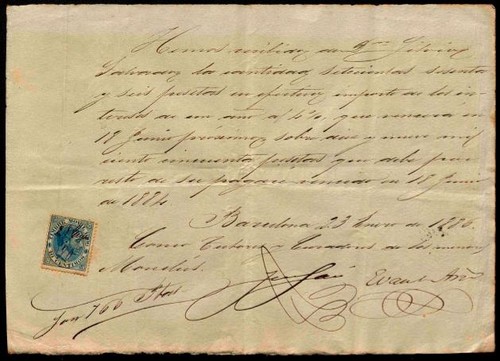 Hemos recibido de Dn. Silvino
Salvador la cantidad setecientas sesenta
y seis pesetas en efectivo importe de los in-
tereses de un año al 4%, que vencerá en
18 Junio próximo sobre diez y nueve mil
ciento cincuenta pesetas que debe por
resto de su pagaré vencido en 18 Junio
de 1884
Barcelona 23 Enero de 1886.
Como Tutores y Curadores de los menores
Son 766 Ptas.